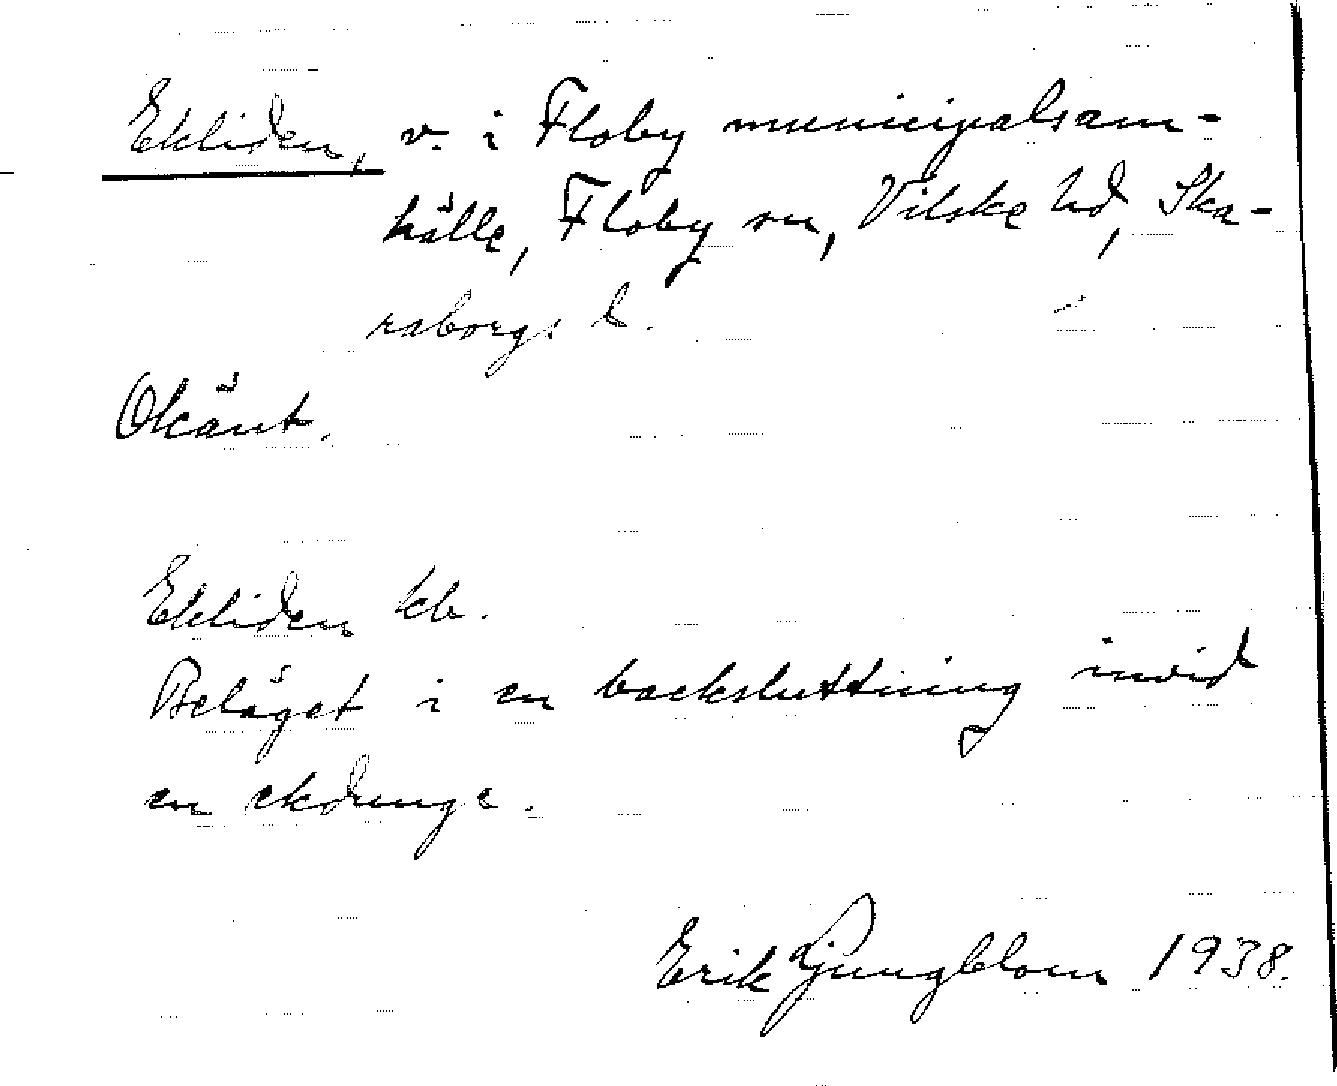 Ekliden, v. i Floby municipalsam-
hälle, Floby sn, Vilske hd, Ska-
raborgs l.
Okänt.
Ekliden kb.
Beläget i en backsluttning invid
en ekdunge.
Erik Ljungblom 1938.